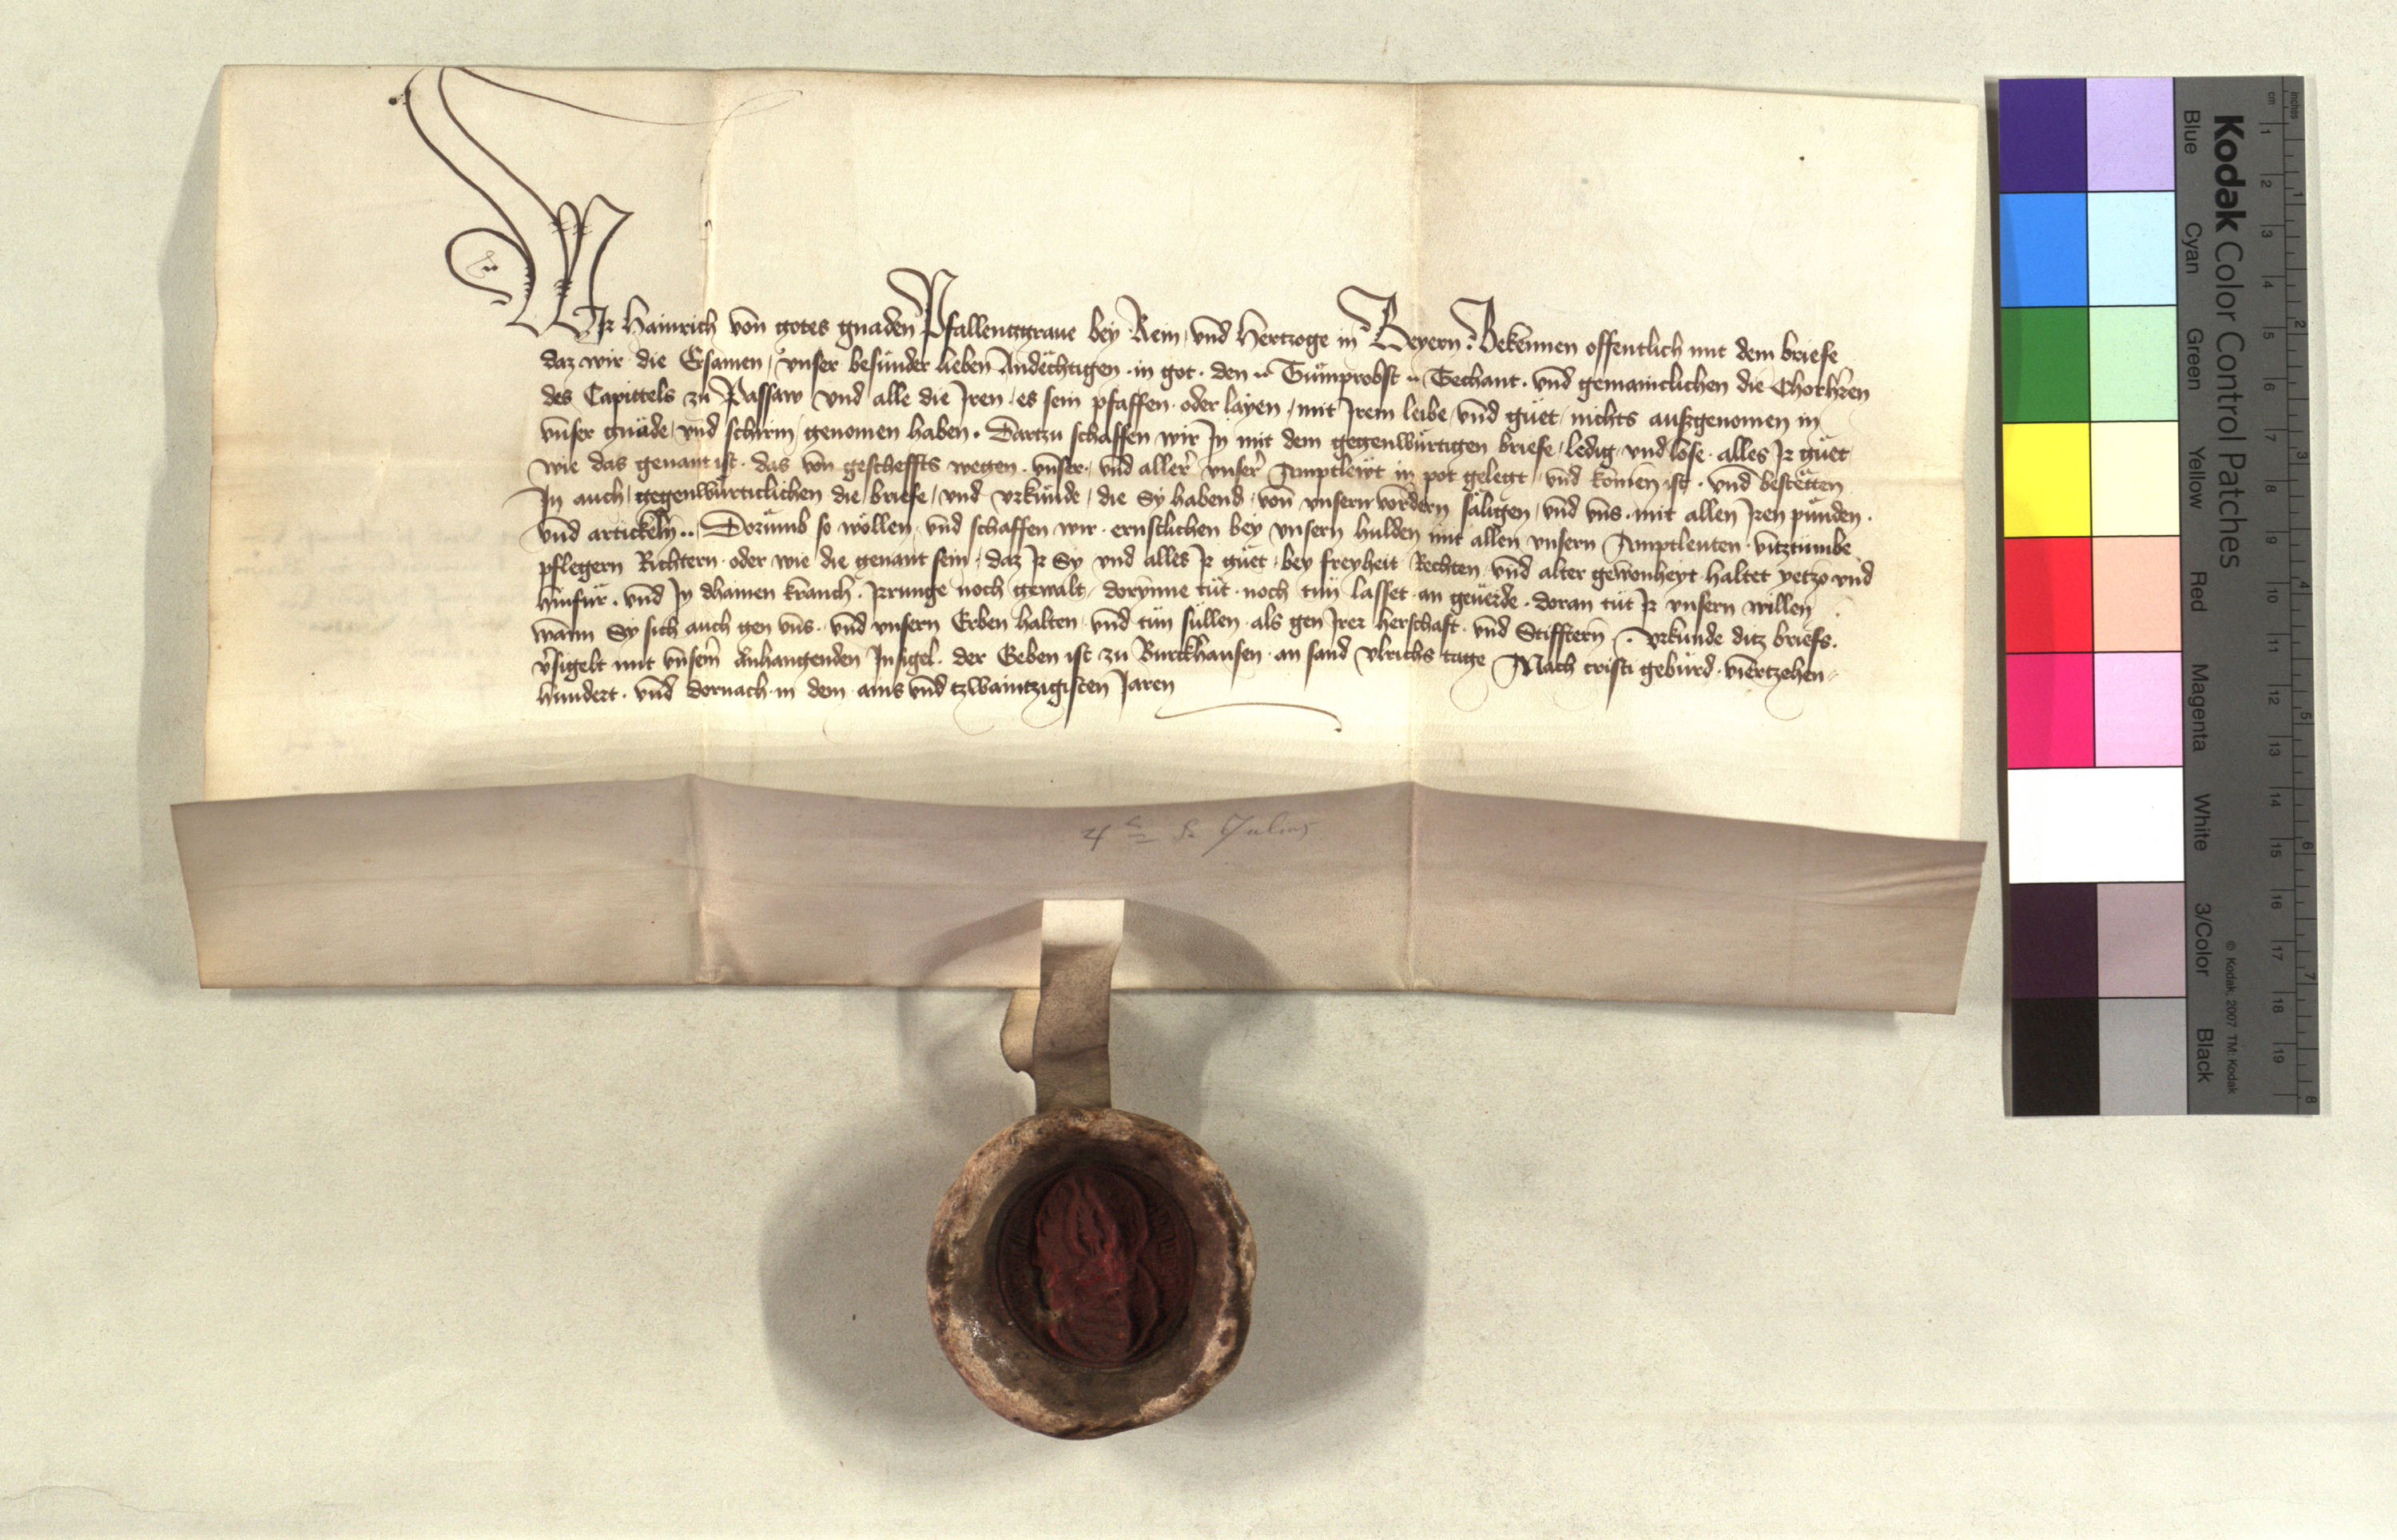 WIr Hainrich von gotes gnaden Pfallenntzgraue bey Rein / vnd Hertzoge in Beyern / Bekennen offentlich mit dem briefe
daz wir die Ersamen / vnser besunder lieben Andechtigen · in got · den ·· Tumprobst ·· Techant · vnd gemainclichen die Chorhern
des Capittels zu Passaw vnd alle die Iren · es sein pfaffen · oder layen / mit Irem leibe / vnd guet / nichts auszgenomen in
vnser gnade / vnd schirm / genomen haben · Dartzu schaffen wir In mit dem gegenwurtigen briefe / ledig / vnd lose · alles Ir guet
wie das genant ist · das von gescheffts wegen · vnser · vnd aller vnser Amptlewt in pot gelegt / vnd komen ist · vnd bestetten
In auch / gegenwurticlichen die briefe / vnd vrkunde / die Sy habend / von vnsern vordern saligen / vnd vns · mit allen Iren punden ·
vnd artickeln ·· Dorumb so wollen · vnd schaffen wir · ernstlichen bey vnsern hulden mit allen vnsern Amptleuten · vitztumbe
pflegern Richtern · oder wie die genant sein / daz Ir Sy vnd alles Ir guet / bey freyheit / Rechten / vnd alter gewonheyt haltet yetzo vnd
hinfur · vnd In dhainen kranch · Irrunge noch gewalt / dorynne tut · noch tun lasset · an geuerde · doran tut Ir vnsern willen
wann Sy sich auch gen vns · vnd vnsern Erben halten / vnd tun sullen · als gen Irer herschaft · vnd Stifftern · vrkunde ditz briefs ·
versigelt mit vnserm anhangenden Insigel · der Geben ist zu Burckhausen · an sand Vlrichs tage Nach cristi geburd · viertzehen-
hundert · vnd dornach in dem ains vnd tzwaintzigisten Jaren
Kodak Color Control Patches
Blue Cyan Green Yellow Red Magenta White 3/Color Black
inches 1 2 3 4 5 6 7 8
cm 1 2 3 4 5 6 7 8 9 10 11 12 13 14 15 16 17 18 19
© Kodak, 2007 TM: Kodak